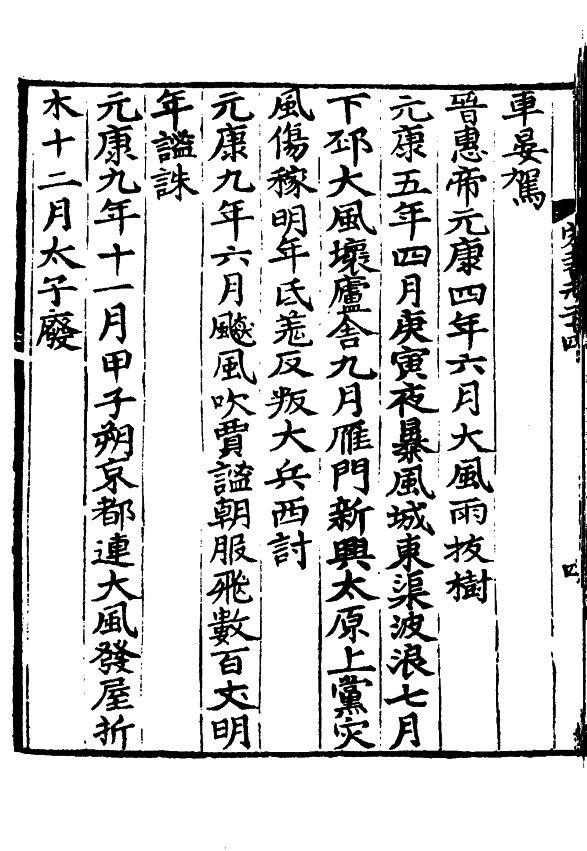 車晏駕
晉惠帝元康四年六月大風雨拔樹
元康五年四月庚寅夜暴風城東渠波浪七月
下邳大風壞廬舍九月雁門新興太原上黨災
風傷稼明年氐羌反叛大兵西討
元康九年六月飈風吹賈謐朝服飛數百丈明
年謐誅
元康九年十一月甲子朔京都連大風發屋折
木十二月太子廢